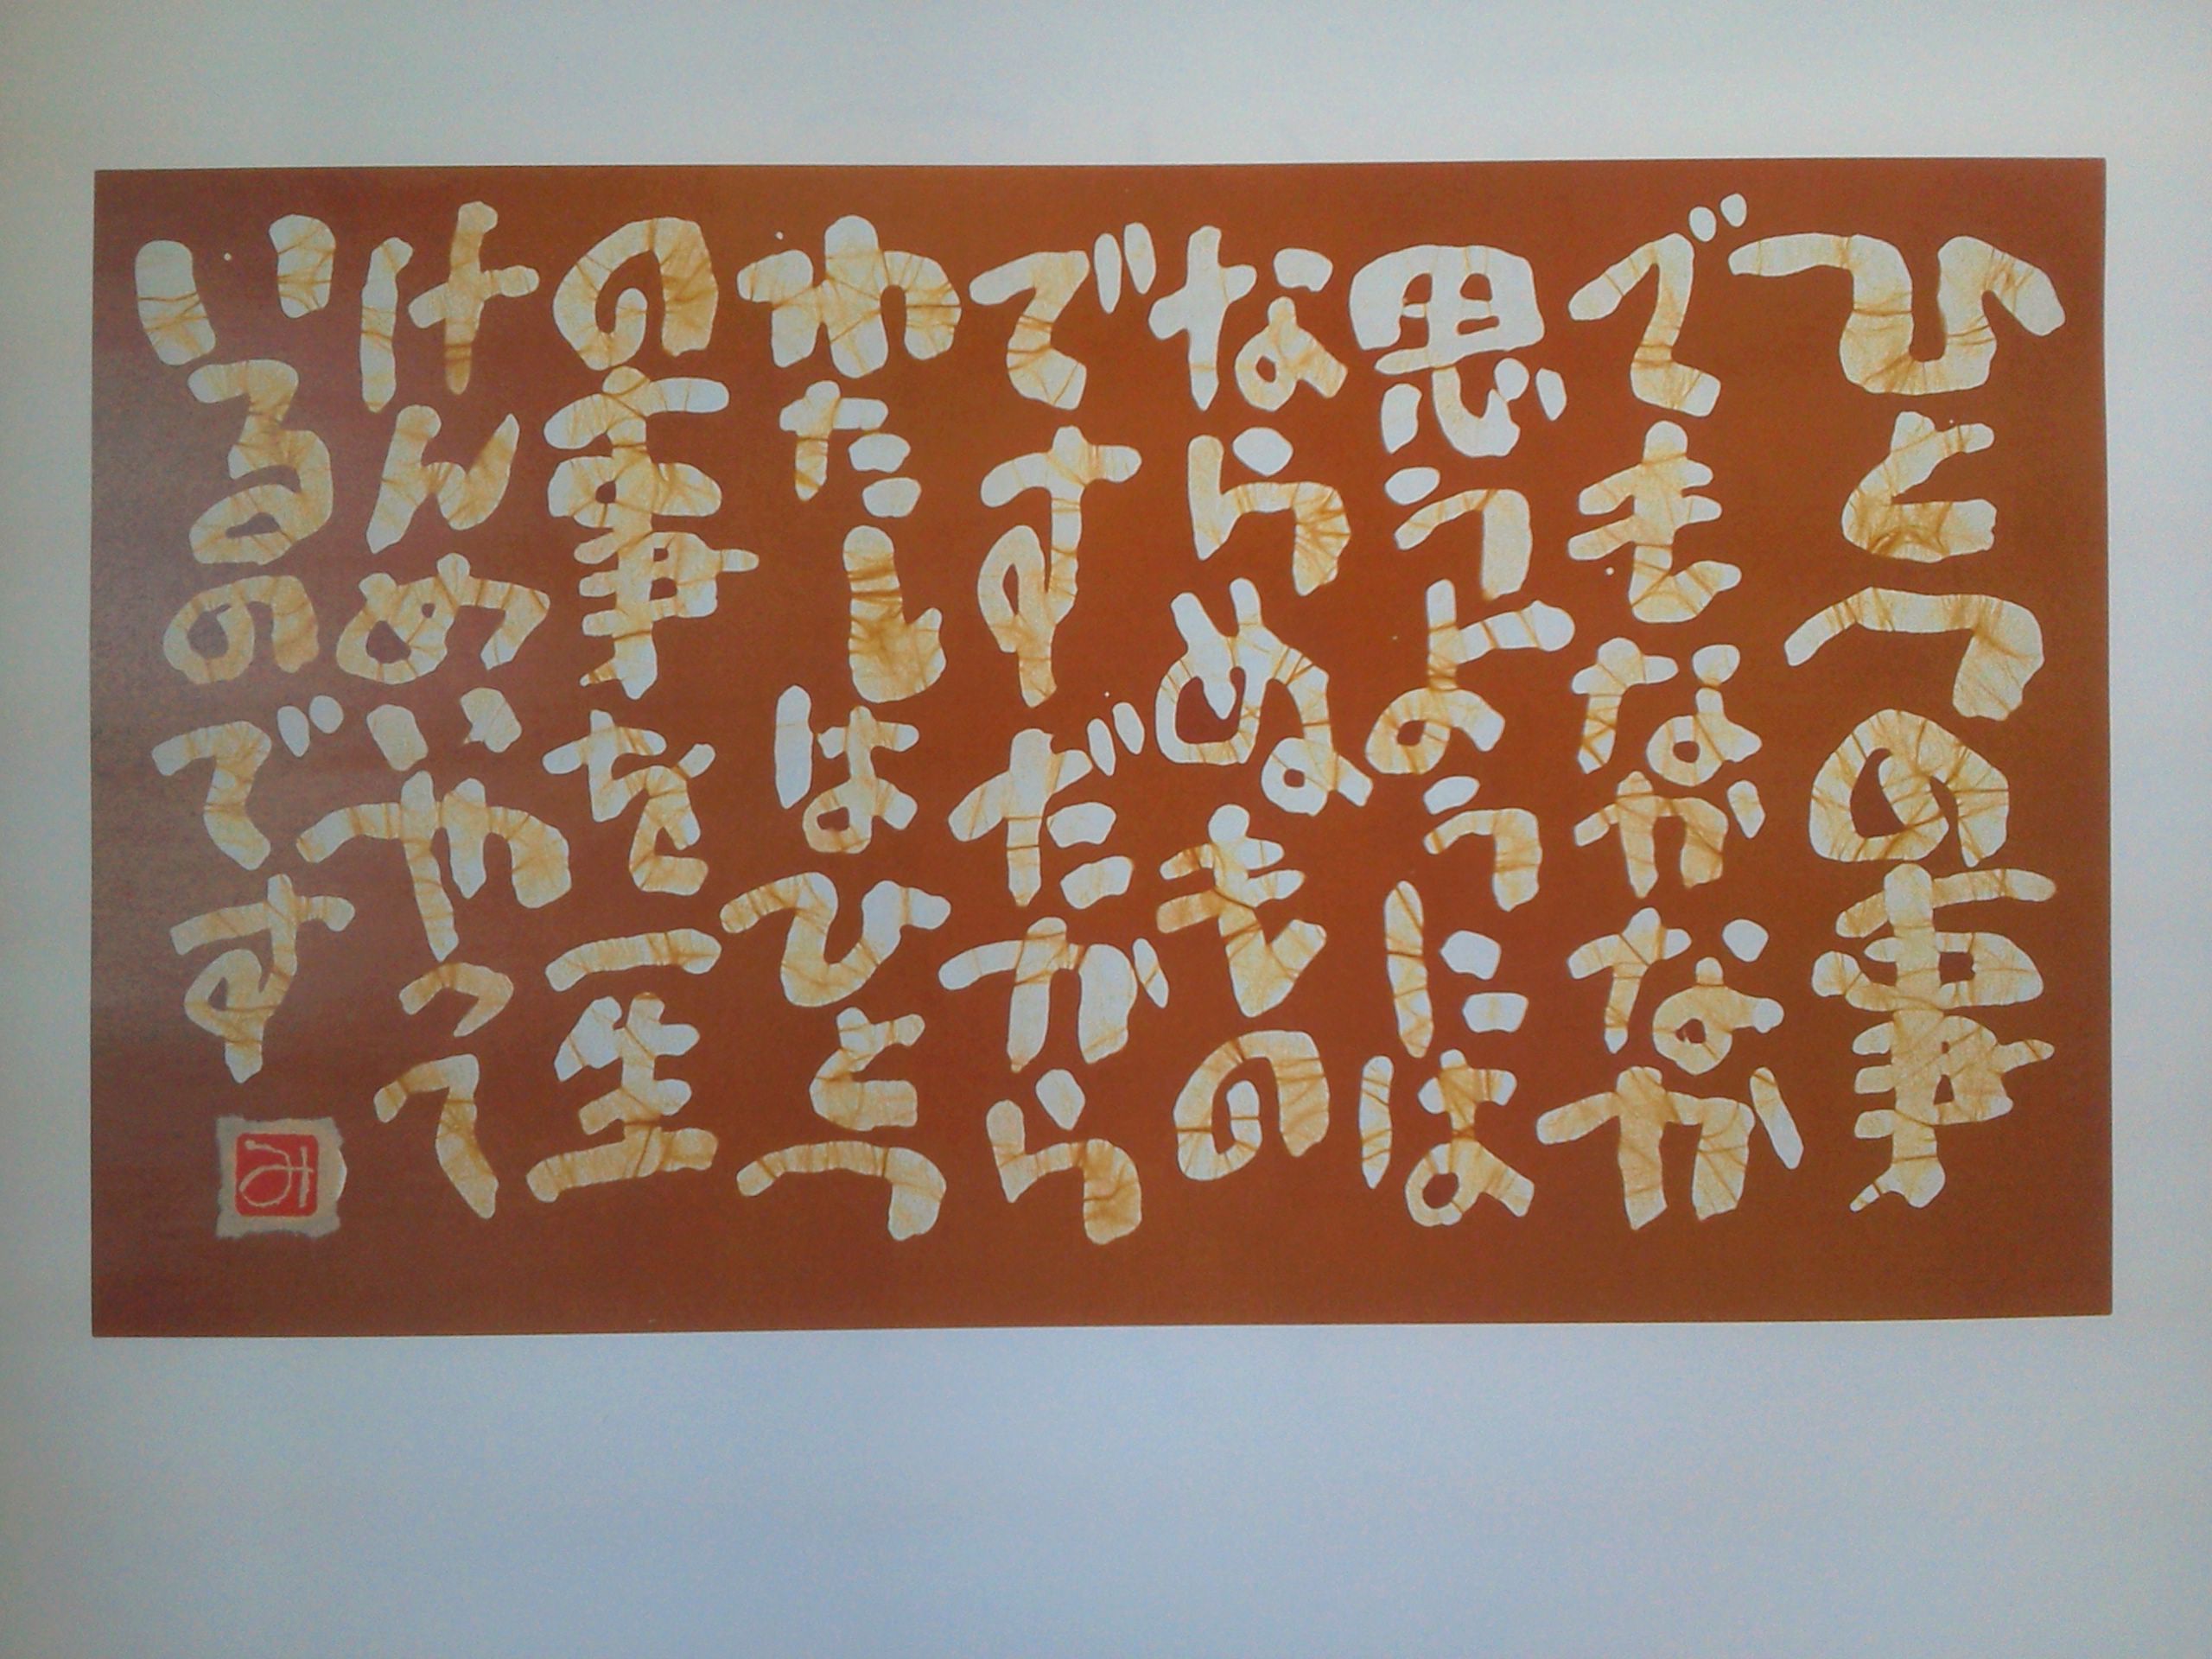 ひとつの事
でもなかなか
思うようには
ならぬもの
です だから
わたしはひとつ
の事を一生
けんめいやって
いるのです
み